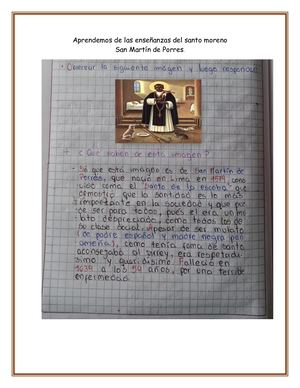 Aprendemos de las enseñanzas del santo moreno
San Martín de Porres.
• Observar la siguiente imagen y luego responder
¿Qué saben de esta imagen?
• Sé que esta imagen es de San Martín de
Porres, que nació en Lima en 1579, cono-
cido como el Santo de la escoba que
demostró que la santidad es lo más
importante en la sociedad y que pue
de ser para todos, pués el era un mu
lato depreciado, como todos los de
su clase social. Apesar de ser mulato
(de padre español y madre negra pan
ameña), como tenía fama de santo
aconsejaba al virrey, era respetadí-
simo y queridísimo. Falleció en
1639 a los 59 años, por una terrible
enfermedad.